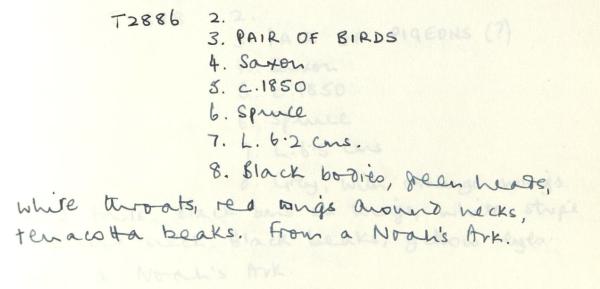 T2886 2.
3. PAIR OF BIRDS
4. Saxon
5. c.1850
6. Spruce
7. L. 6.2 cms.
8. Black bodies, green heads,
white throats, red rings around necks,
terracotta beaks. From a Noah's Ark.